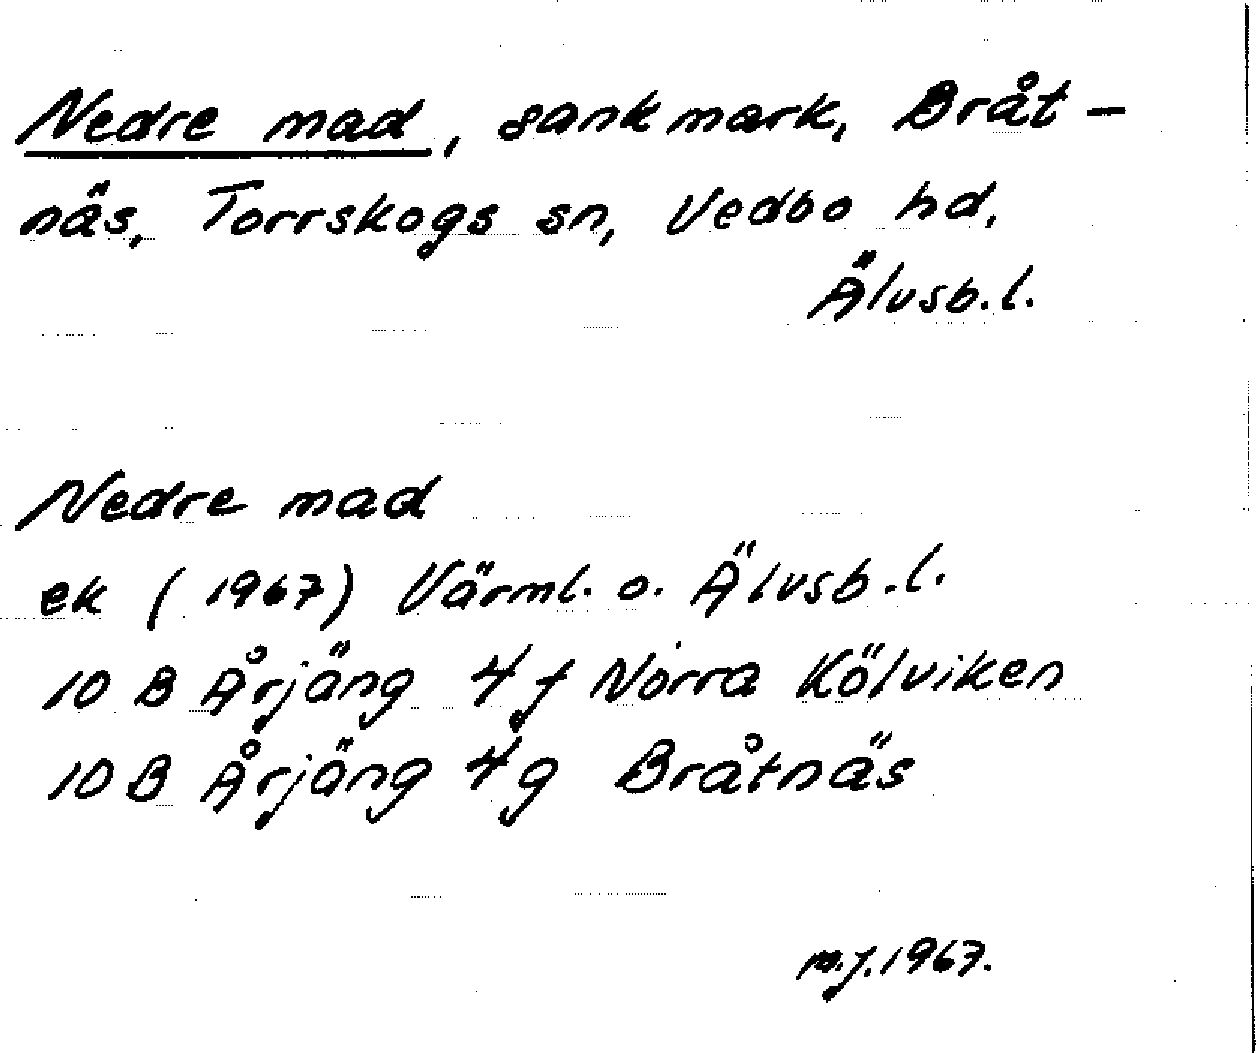 Nedre mad, sankmark, Bråt-
näs, Torrskogs sn, Vedbo hd,
Älvsb.l.
Nedre mad
ek (1967) Värml. o. Älvsb.l.
10 B Årjäng 4f Norra Kölviken
10B Årjäng 4g Bråtnäs
m.j.1967.